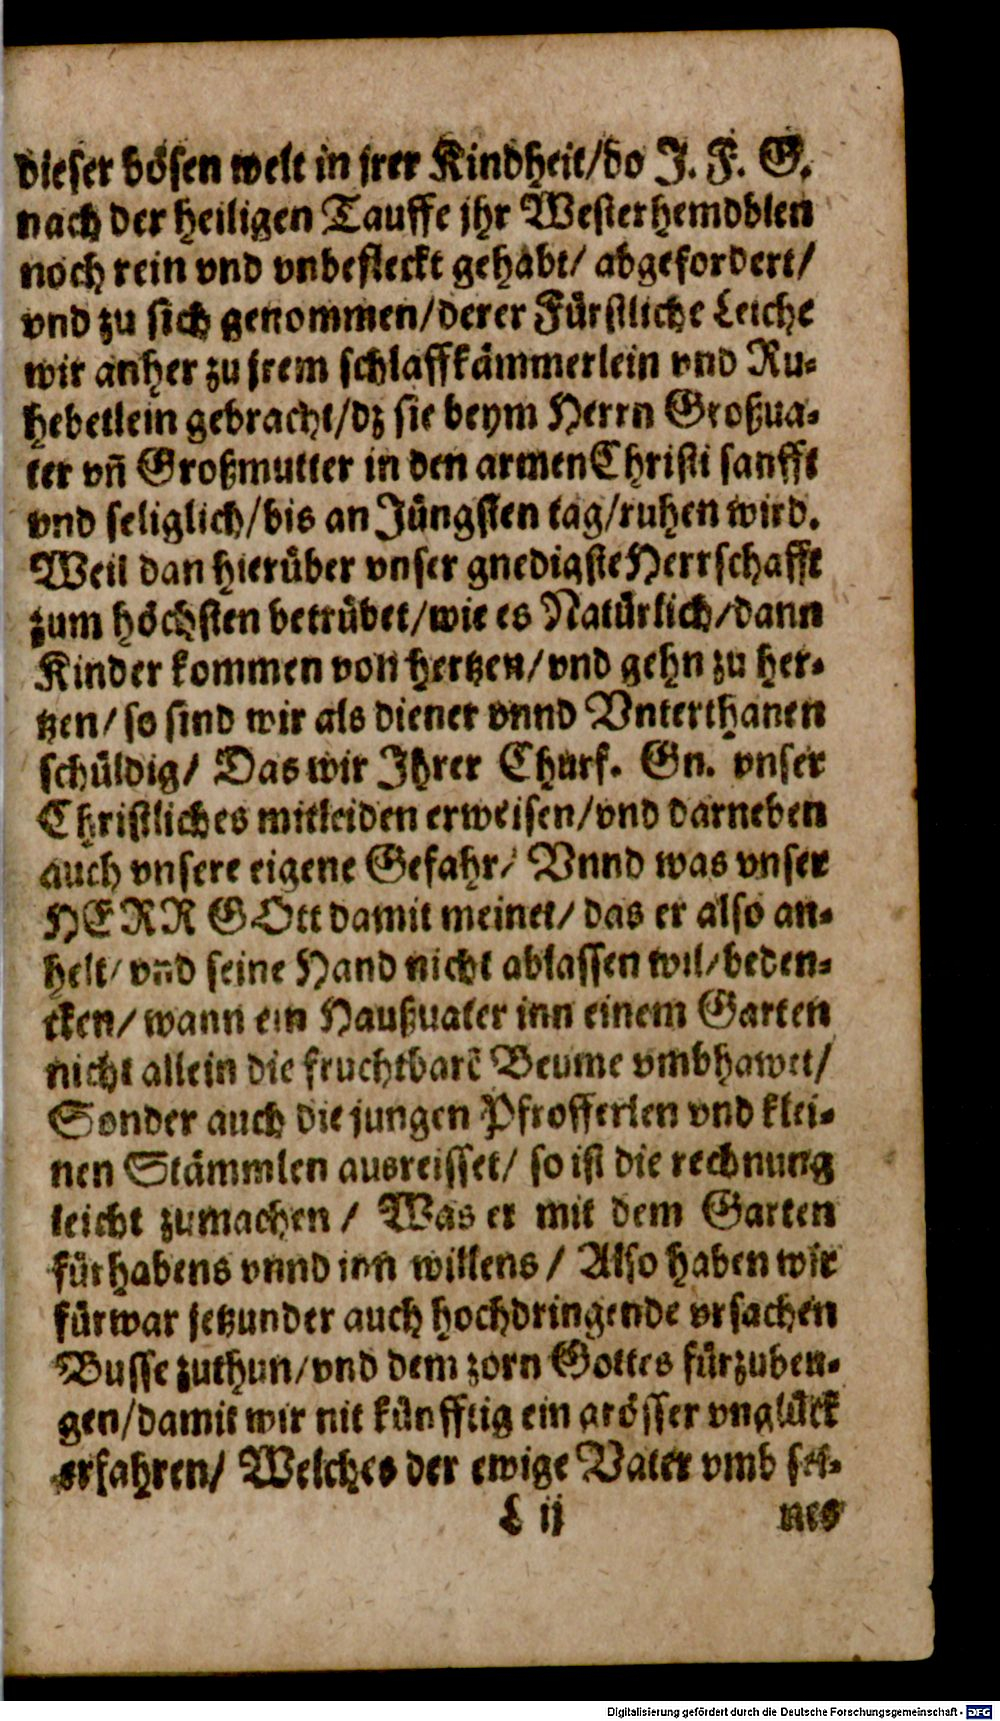 dieser bösen welt in jrer Kindheit/do J. F. G.
nach der heiligen Tauffe jhr Westerhemdblen
noch rein vnd vnbefleckt gehabt/ abgefordert/
vnd zu sich genommen/derer Fürstliche Leiche
wir anher zu jrem schlaffkämmerlein vnd Ru-
hebetlein gebracht/dz sie beym Herrn Großua-
ter vñ Großmutter in den armen Christi sanfft
vnd seliglich/bis an Jüngsten tag/ruhen wird.
Weil dan hierüber vnser gnedigste Herrschafft
zum höchsten betrübet/wie es Natürlich/dann
Kinder kommen von hertzen/vnd gehn zu her-
tzen/ so sind wir als diener vnnd Vnterthanen
schüldig/ Das wir Jhrer Churf. Gn. vnser
Christliches mitleiden erweisen/vnd darneben
auch vnsere eigene Gefahr/ Vnnd was vnser
HERR GOtt damit meinet/ das er also an-
helt/ vnd seine Hand nicht ablassen wil/beden-
cken/ wann ein Haußuater inn einem Garten
nicht allein die fruchtbarẽ Beume vmbhawet/
Sonder auch die jungen Pfrofferlen vnd klei-
nen Stämmlen ausreisset/ so ist die rechnung
leicht zumachen / Was er mit dem Garten
fürhabens vnnd inn willens / Also haben wir
fürwar jetzunder auch hochdringende vrsachen
Busse zuthun/vnd dem zorn Gottes fürzuben-
gen/damit wir nit künfftig ein grösser vnglück
erfahren/ Welches der ewige Vater vmb sei-
L ij nes
Digitalisierung gefördert durch die Deutsche Forschungsgemeinschaft - DFG